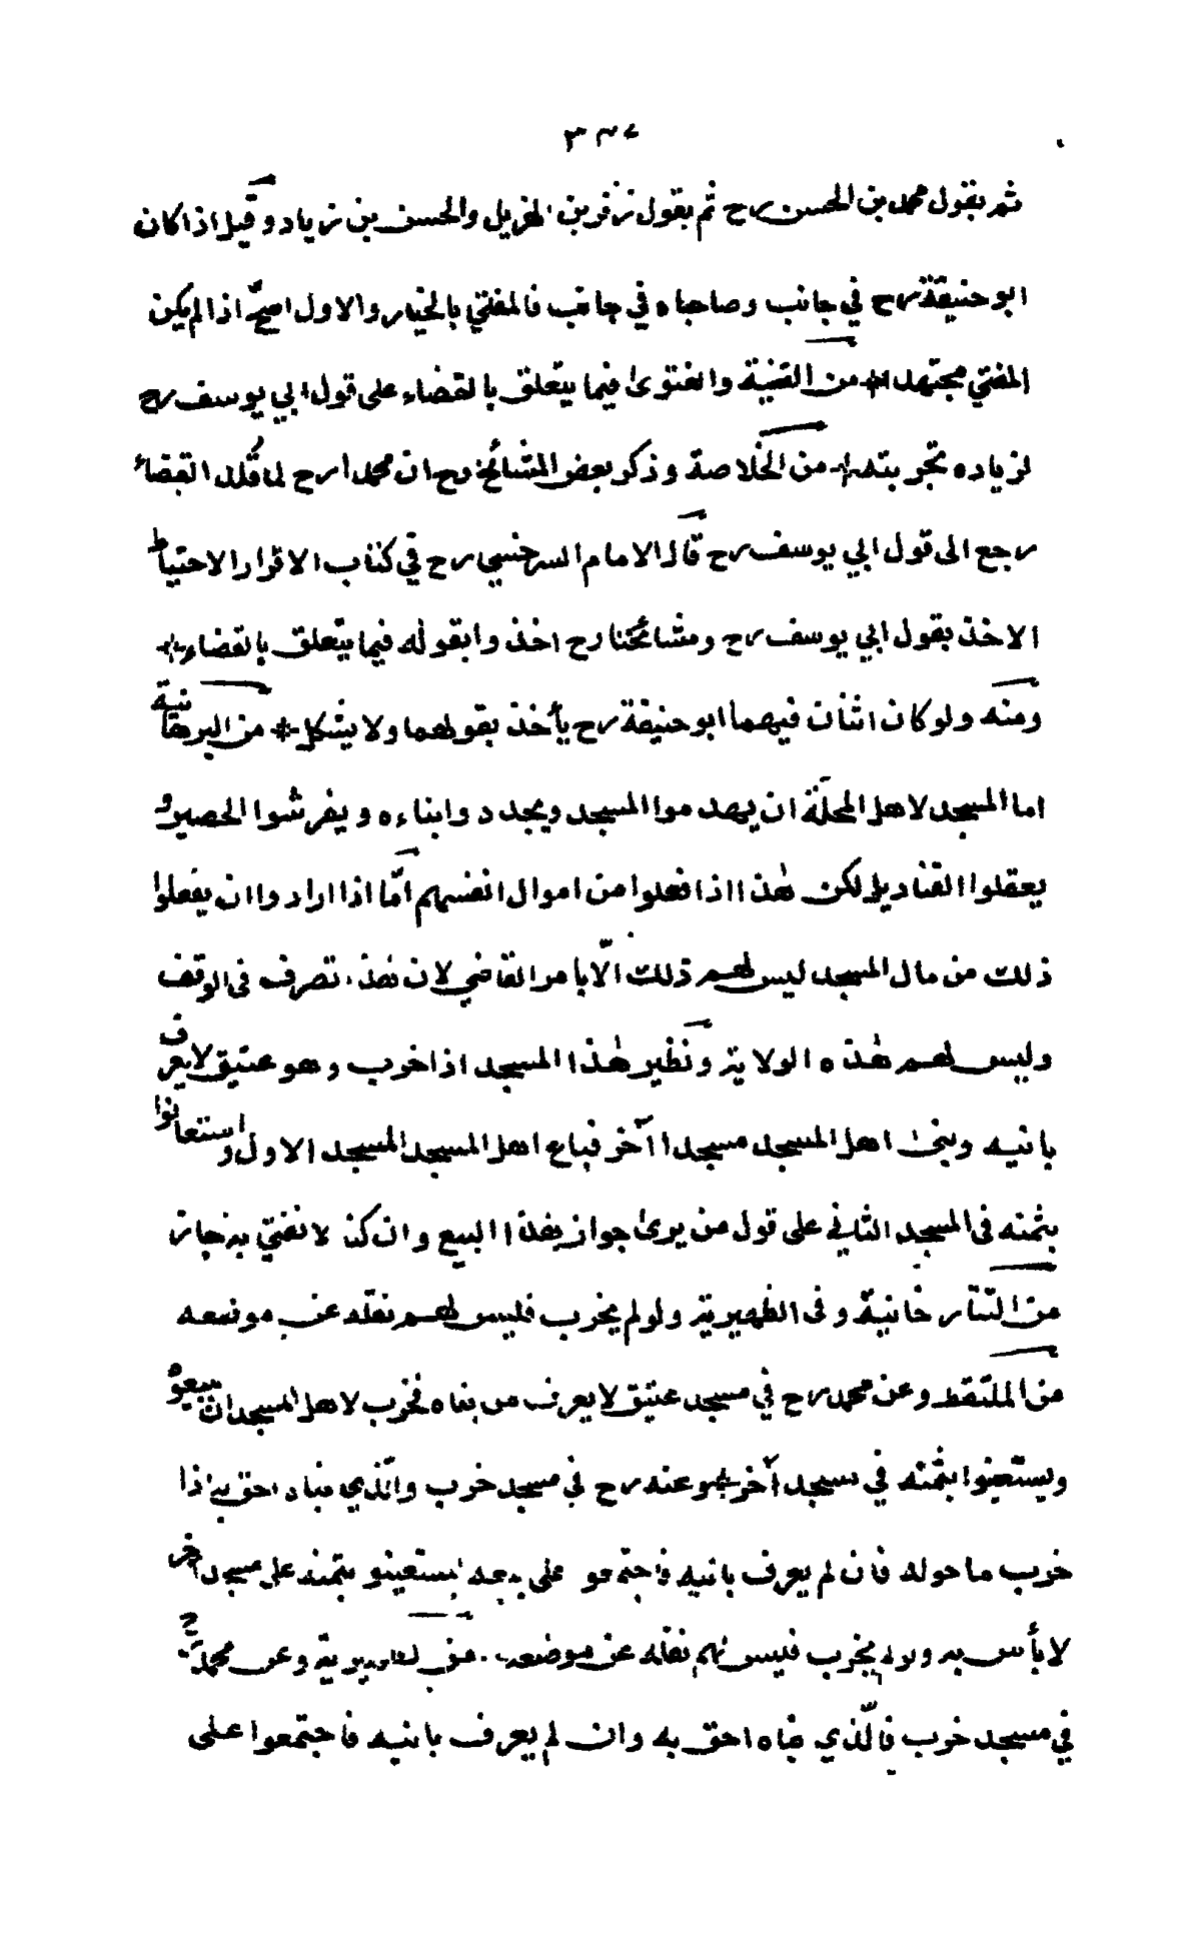 ثم بقول محمد بن الحسن رح ثم بقول زفر بن الهزيل والحسن بن زياد وقيل اذا كان
ابو حنيفة رح في جانب وصاحباه في جانب فالمفتي بالخيار والاول اصح اذا لم يكن
المفتي مجتهدا * من القنية والفتوى فيما يتعلق بالقضاء على قول ابي يوسف رح
لزياده تجربته * من الخلاصة وذكر بعض المشائخ رح ان محمدا رح لما قلد القضاء
رجع الى قول ابي يوسف رح قال الامام السرخسي رح في كتاب الاقرار الاحتياط
الاخذ بقول ابي يوسف رح ومشائخنا رح اخذوا بقوله فيما يتعلق بالقضاء *
ومنه ولو كان اثنان فيهما ابو حنيفة رح يأخذ بقولهما ولا يشكل * من البرهانية
اما المسجد لاهل المحلّة ان يهدموا المسجد ويجددوا بناءه ويفرشوا الحصير و
يعقلوا القناديل لكن هذا اذا فعلوا من اموال انفسهم امّا اذا ارادوا ان يفعلوا
ذلك من مال المسجد ليس لهم ذلك الّا بامر القاضي لان هذا تصرف فى الوقف
وليس لهم هذه الولاية ونظير هذا المسجد اذا خرب وهو عتيق لا يعرف
بانيه وبنى اهل المسجد مسجدا آخر فباع اهل المسجد المسجد الاول واستعانوا
بثمنه فى المسجد الثاني على قول من يرى جواز هذا البيع وان كنا لا نفتي به جاز
من التتار خانية وفى الظهيرية ولو لم يخرب فليس لهم نقله عن موضعه
من الملتقط وعن محمد رح في مسجد عتيق لا يعرف من بناه فخرب لاهل المسجد ان يبيعوه
ويستعينوا بثمنه في مسجد آخر * وعنه رح في مسجد خرب والّذي بناه احق به اذا
خرب ما حوله فان لم يعرف بانيه فاجتمعوا على بيعه ليستعينو بثمنه على مسجد آخر
لا بأس به ولو لم يخرب فليس لهم نقله عن موضعه . من الظهيرية وعن محمد رح
في مسجد خرب فالّذي بناه احق به وان لم يعرف بانيه فاجتمعوا على